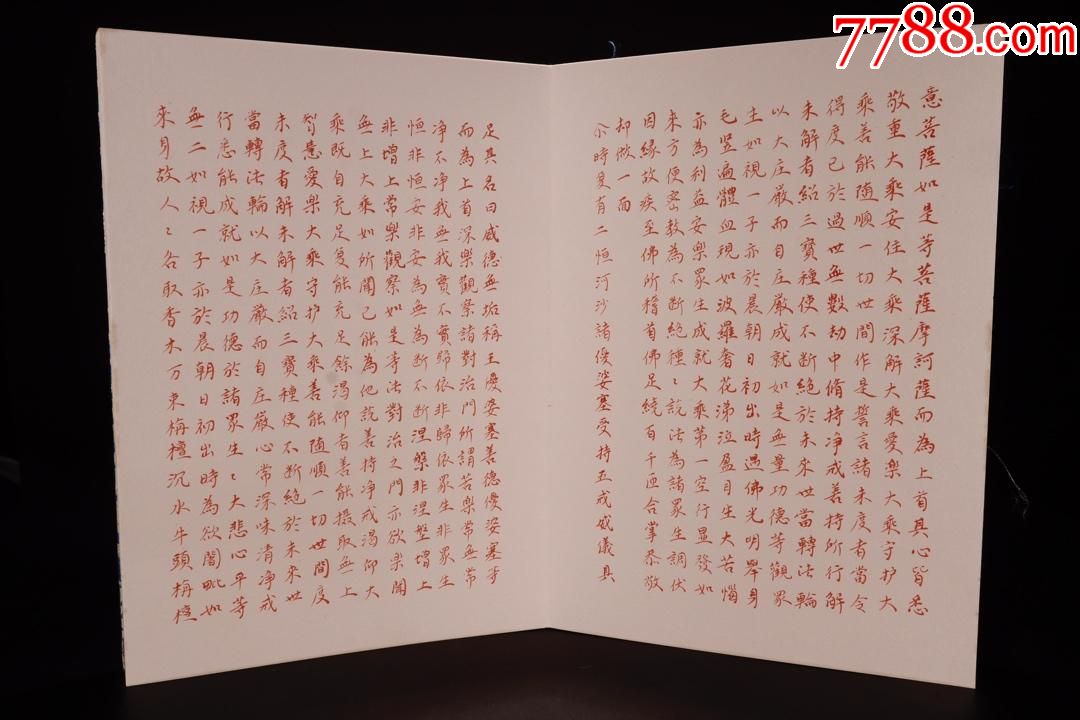 7788.com
意菩薩如是等菩薩摩訶薩而為上首具心皆悉
敬重大乘安住大乘深解大乘愛樂大乘守护大
乘善能随順一切世間作是誓言諸未度者當令
得度已於過世無數劫中脩持净戒善持所行解
未解者紹三寶種使不断絶於未來世當轉法輪
以大庄嚴而自庄嚴成就如是無量功德等觀眾
生如視一子亦於晨朝日初出時遇佛光明舉身
毛竖遍體血現如波羅奢花涕泣盈目生大苦惱
亦為利益安樂眾生成就大乘第一空行显發如
来方便密教為不断絶種〻説法為諸眾生調伏
因緣故疾至佛所稽首佛足繞百千匝合掌恭敬
却做一面
尒時复有二恒河沙諸優婆塞受持五戒威儀具
足具名曰威德無垢稱王優婆塞善德優婆塞等
而為上首深樂觀察諸對治門所謂苦樂常無常
净不净我無我實不實歸依非歸依眾生非眾生
恒非恒安非安為無為断不断涅槃非涅槃增上
非增上常樂觀察如是等法對治之門亦欲樂聞
無上大乘如所聞已能為他説善持净戒渴仰大
乘既自充足复能充足餘渴仰者善能摄取無上
智慧愛樂大乘守护大乘善能随順一切世間度
未度者解未解者紹三寶種使不断絶於未来世
當轉法輪以大庄嚴而自庄嚴心常深味清净戒
行悉能成就如是功德於諸眾生〻大悲心平等
無二如視一子亦於晨朝日初出時為欲闍毗如
來身故人〻各取香木万束栴檀沉水牛頭栴檀